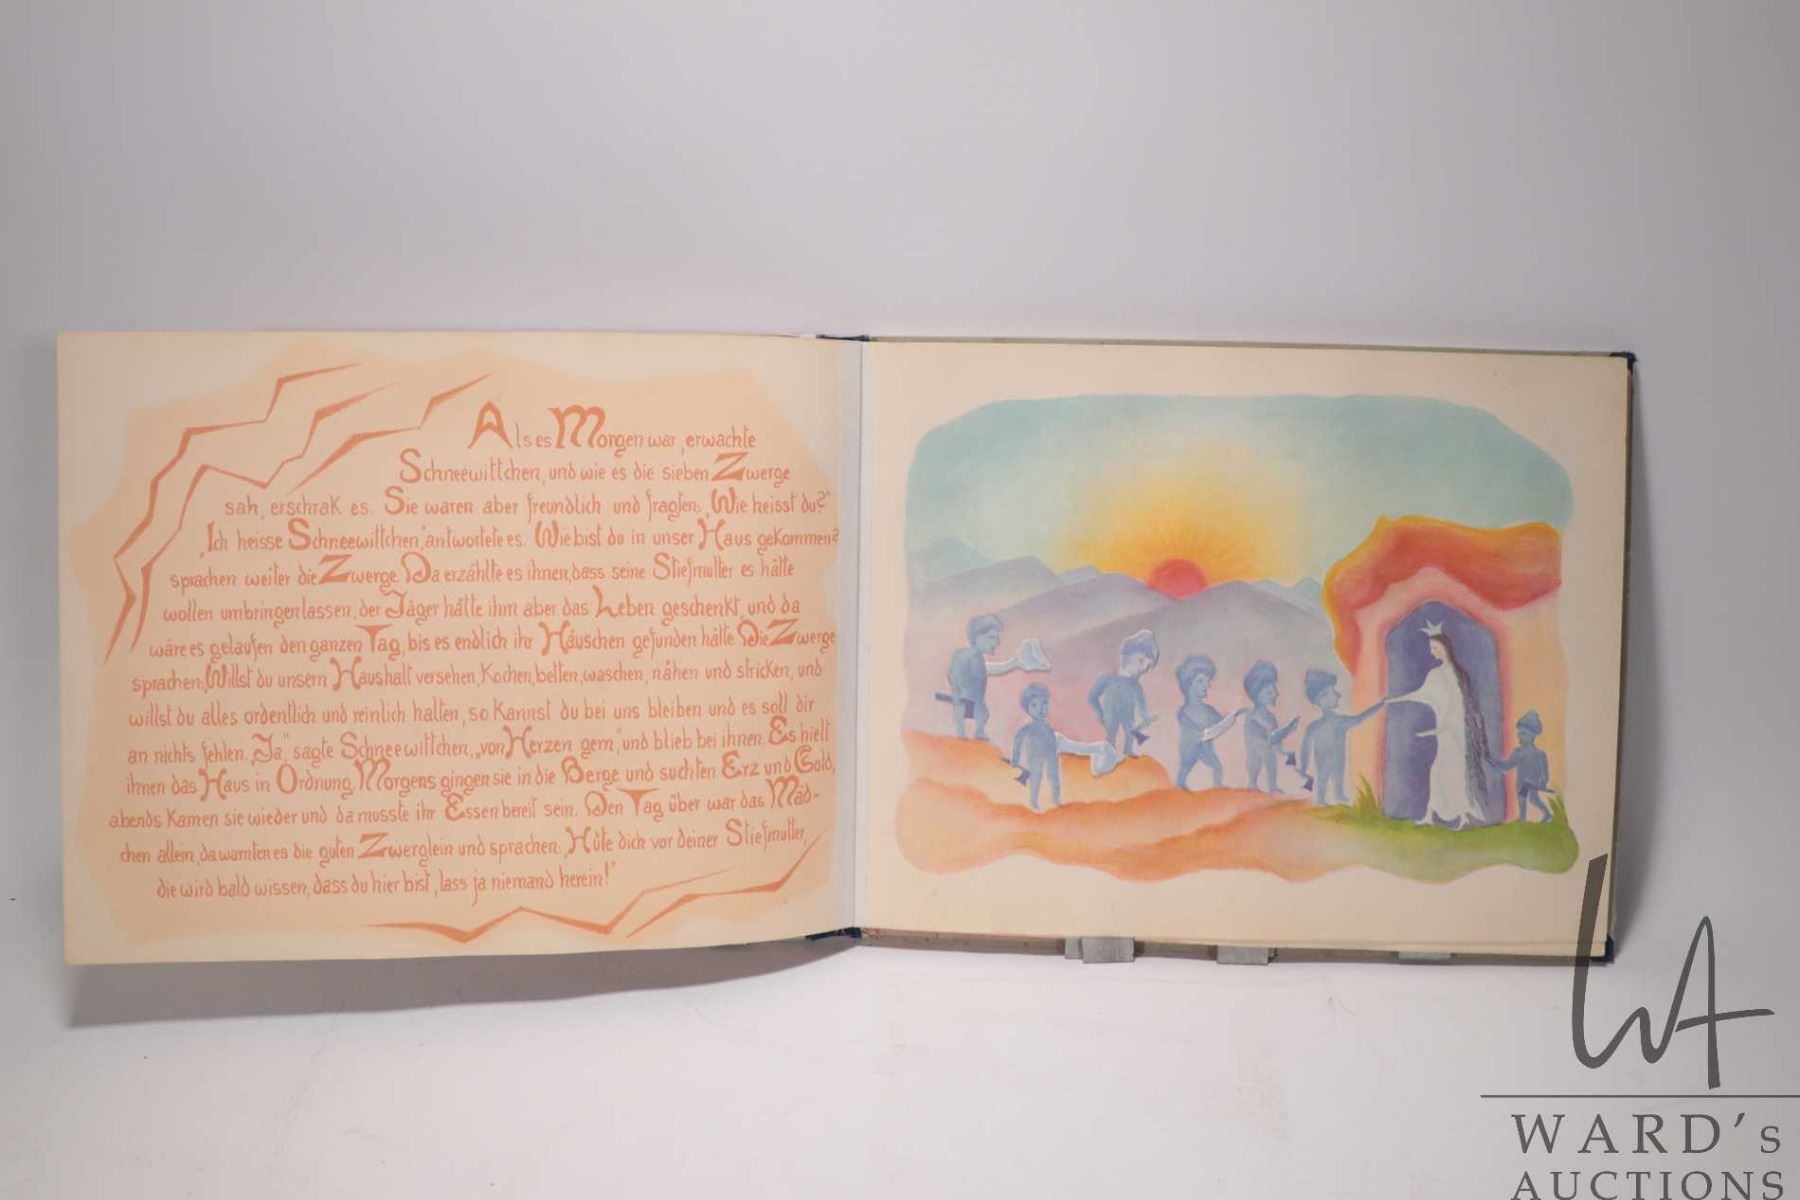 Als es Morgen war, erwachte
Schneewittchen, und wie es die sieben Zwerge
sah, erschrak es. Sie waren aber freundlich und fragten: „Wie heisst du?"
„Ich heisse Schneewittchen," antwortete es. Wie bist du in unser Haus gekommen?
sprachen weiter die Zwerge. Da erzählte es ihnen, dass seine Stiefmutter es hätte
wollen umbringen lassen, der Jäger hätte ihm aber das Leben geschenkt, und da
wäre es gelaufen den ganzen Tag, bis es endlich ihr Häuschen gefunden hätte. Die Zwerge
sprachen: „Willst du unsern Haushalt versehen, Kochen, betten, waschen, nähen und stricken, und
willst du alles ordentlich und reinlich halten, so Kannst du bei uns bleiben und es soll dir
an nichts fehlen. „Ja," sagte Schneewittchen, „von Herzen gern," und blieb bei ihnen. Es hielt
ihnen das Haus in Ordnung. Morgens gingen sie in die Berge und suchten Erz und Gold,
abends Kamen sie wieder und da musste ihr Essen bereit sein. Den Tag über war das Mäd-
chen allein, da warnten es die guten Zwerglein und sprachen: „Hüte dich vor deiner Stiefmutter,
die wird bald wissen, dass du hier bist, lass ja niemand herein!"
WA
WARD's
AUCTIONS